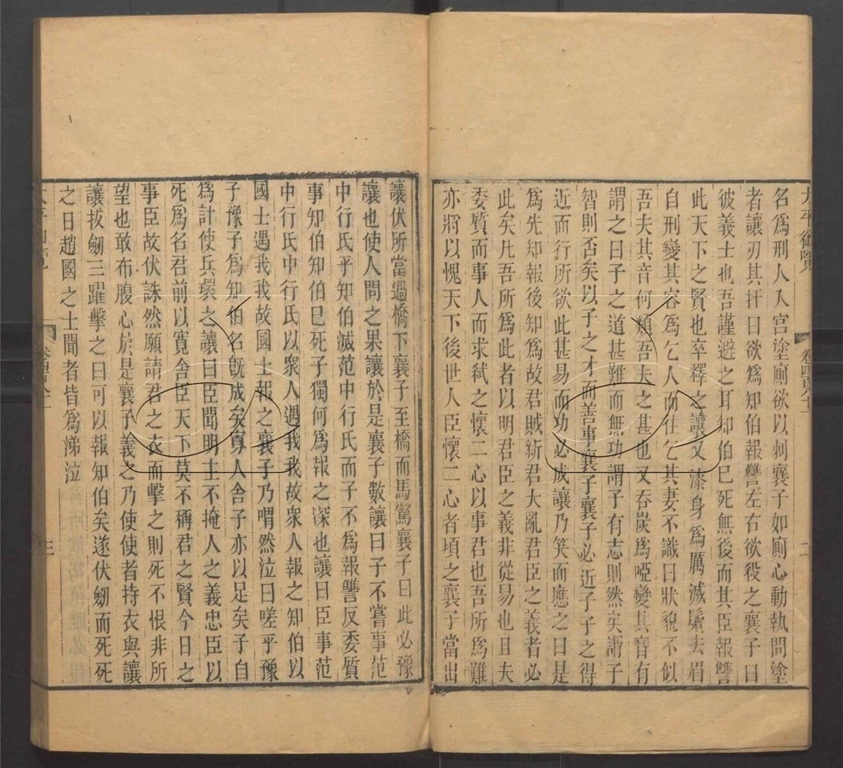 太平御覽
卷四百八十一
二
名爲刑人入宫塗廁欲以刺襄子如廁心動執問塗
者讓刃其扞曰欲爲知伯報讐左右欲殺之襄子曰
彼義士也吾謹避之耳知伯已死無後而其臣報讐
此天下之賢也卒釋之讓又漆身爲厲滅鬚去眉
自刑變其容爲乞人而往乞其妻不識曰狀貌不似
吾夫其音何類吾夫之甚也又吞炭爲啞變其音有
謂之曰子之道甚難而無功謂子有志則然矣謂子
智則否矣以子之才而善事襄子襄子必近子子之得
近而行所欲此甚易而功必成讓乃笑而應之曰是
爲先知報後知爲故君賊新君大亂君臣之義者必
此矣凡吾所爲此者以明君臣之義非從易也且夫
委質而事人而求弑之懷二心以事君也吾所爲難
亦將以愧天下後世人臣懷二心者頃之襄子當出
讓伏所當過橋下襄子至橋而馬驚襄子曰此必豫
讓也使人問之果讓於是襄子數讓曰子不嘗事范
中行氏乎知伯滅范中行氏而子不爲報讐反委質
事知伯知伯已死子獨何爲報之深也讓曰臣事范
中行氏中行氏以衆人遇我我故衆人報之知伯以
國士遇我我故國士報之襄子乃喟然泣曰嗟乎豫
子豫子爲知伯名旣成矣寡人舍子亦以足矣子自
爲計使兵環之讓曰臣聞明士不掩人之義忠臣以
死爲名君前以寬舍臣天下莫不稱君之賢今日之
事臣故伏誅然願請君之衣而擊之則死不恨非所
望也敢布腹心於是襄子義之乃使使者持衣與讓
讓拔劒三躍擊之曰可以報知伯矣遂伏劒而死死
之日趙國之士聞者皆爲涕泣
太平御覽
卷四百八十一
三